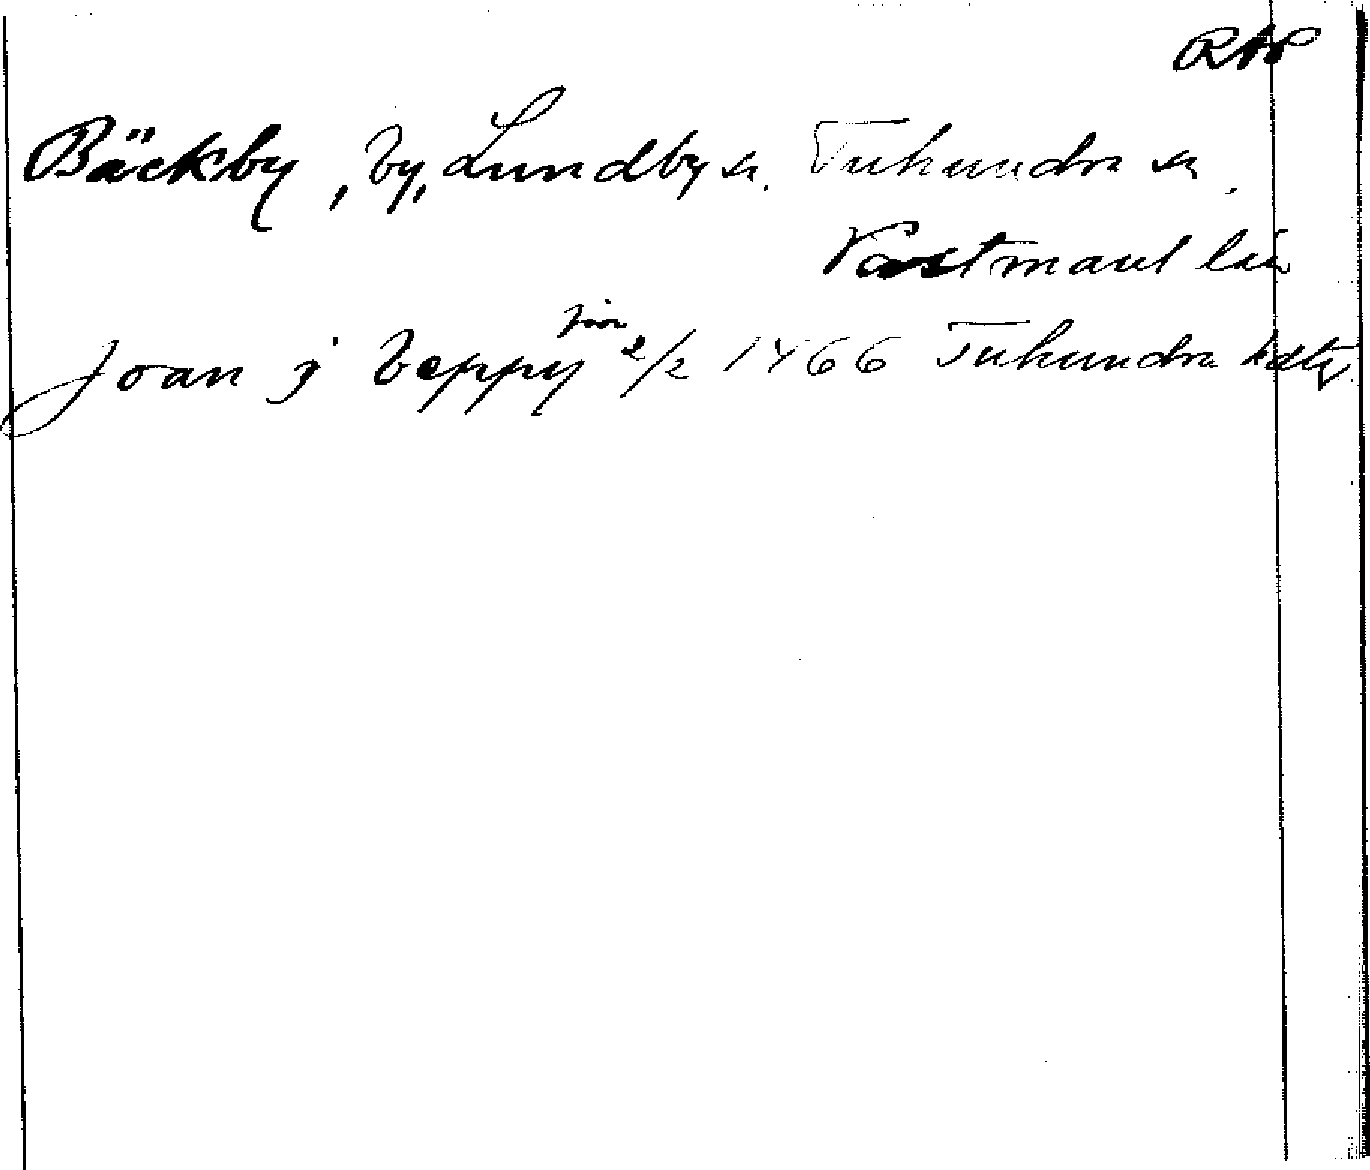 RAP
Bäckby, by, Lundby sn. Tuhundra sn.
Västmanl län
Joan j beppy 2/2 1466 Tuhundra